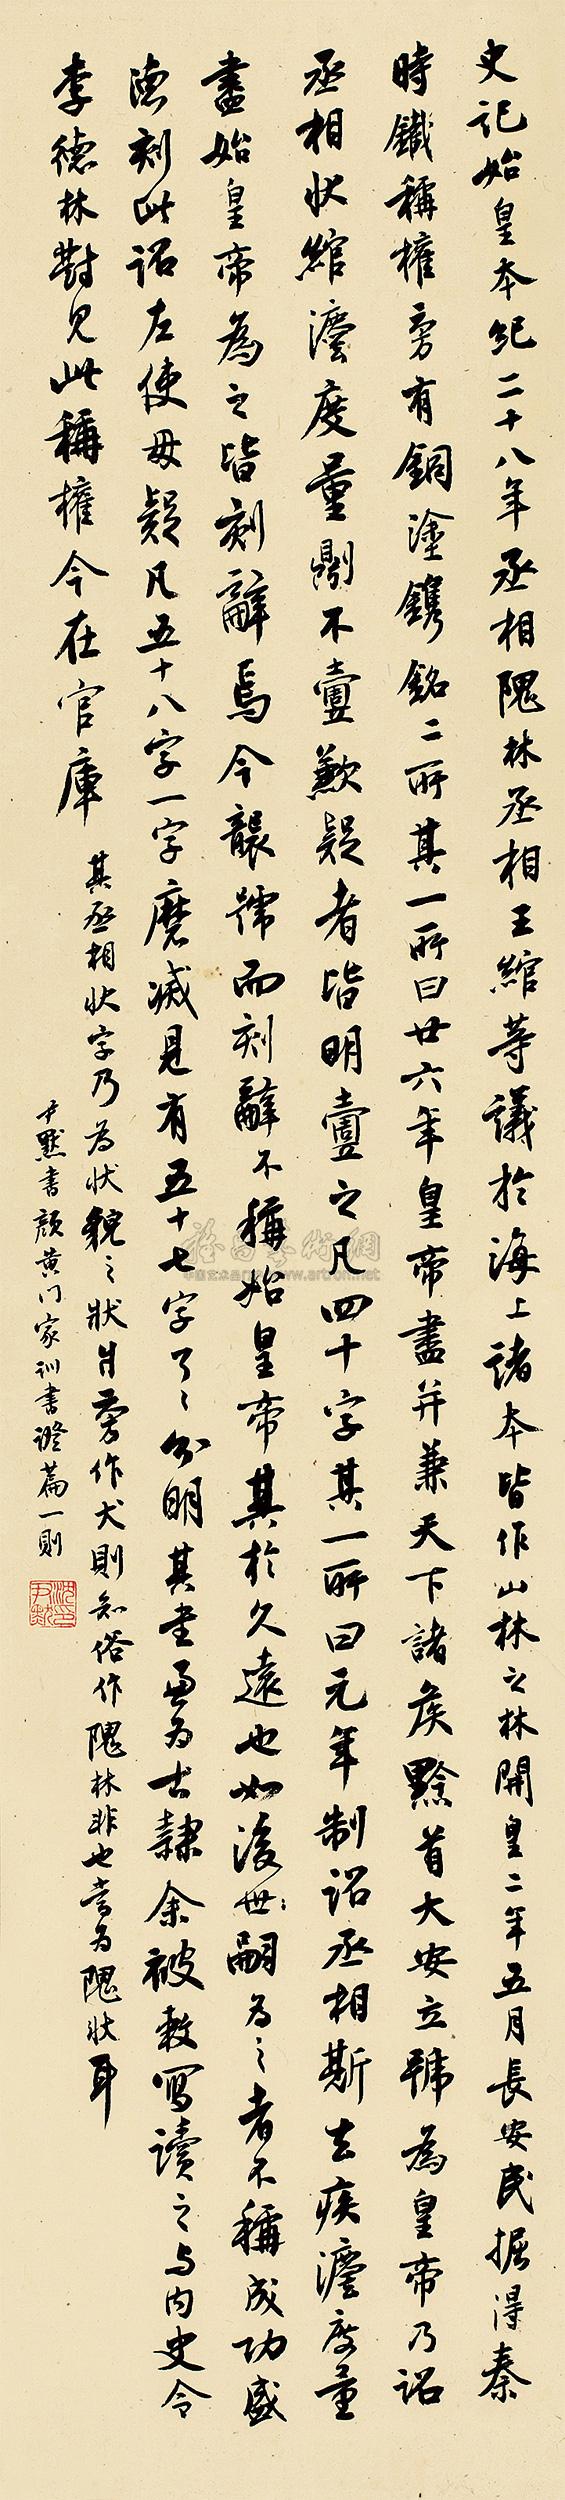 史記始皇本紀二十八年丞相隗林丞相王綰等議於海上諸本皆作山林之林開皇二年五月長安民掘得秦
時鐵稱權旁有銅塗鐫銘二所其一所曰廿六年皇帝盡并兼天下諸侯黔首大安立號為皇帝乃詔
丞相狀綰灋度量䵻不壹歉疑者皆明壹之凡四十字其一所曰元年制詔丞相斯去疾灋度量
盡始皇帝為之皆刻辭焉今襲號而刻辭不稱始皇帝其於久遠也如後世:嗣為之者不稱成功盛
德刻此詔左使毋疑凡五十八字一字磨滅見有五十七字了了分明其書兼為古隸余被敕寫讀之与內史令
李德林對見此稱權今在官庫
其丞相狀字乃為狀貌之狀爿旁作犬則知俗作隗林非也當為隗狀耳
尹默書顏黃門家訓書證篇一則
沈尹默印